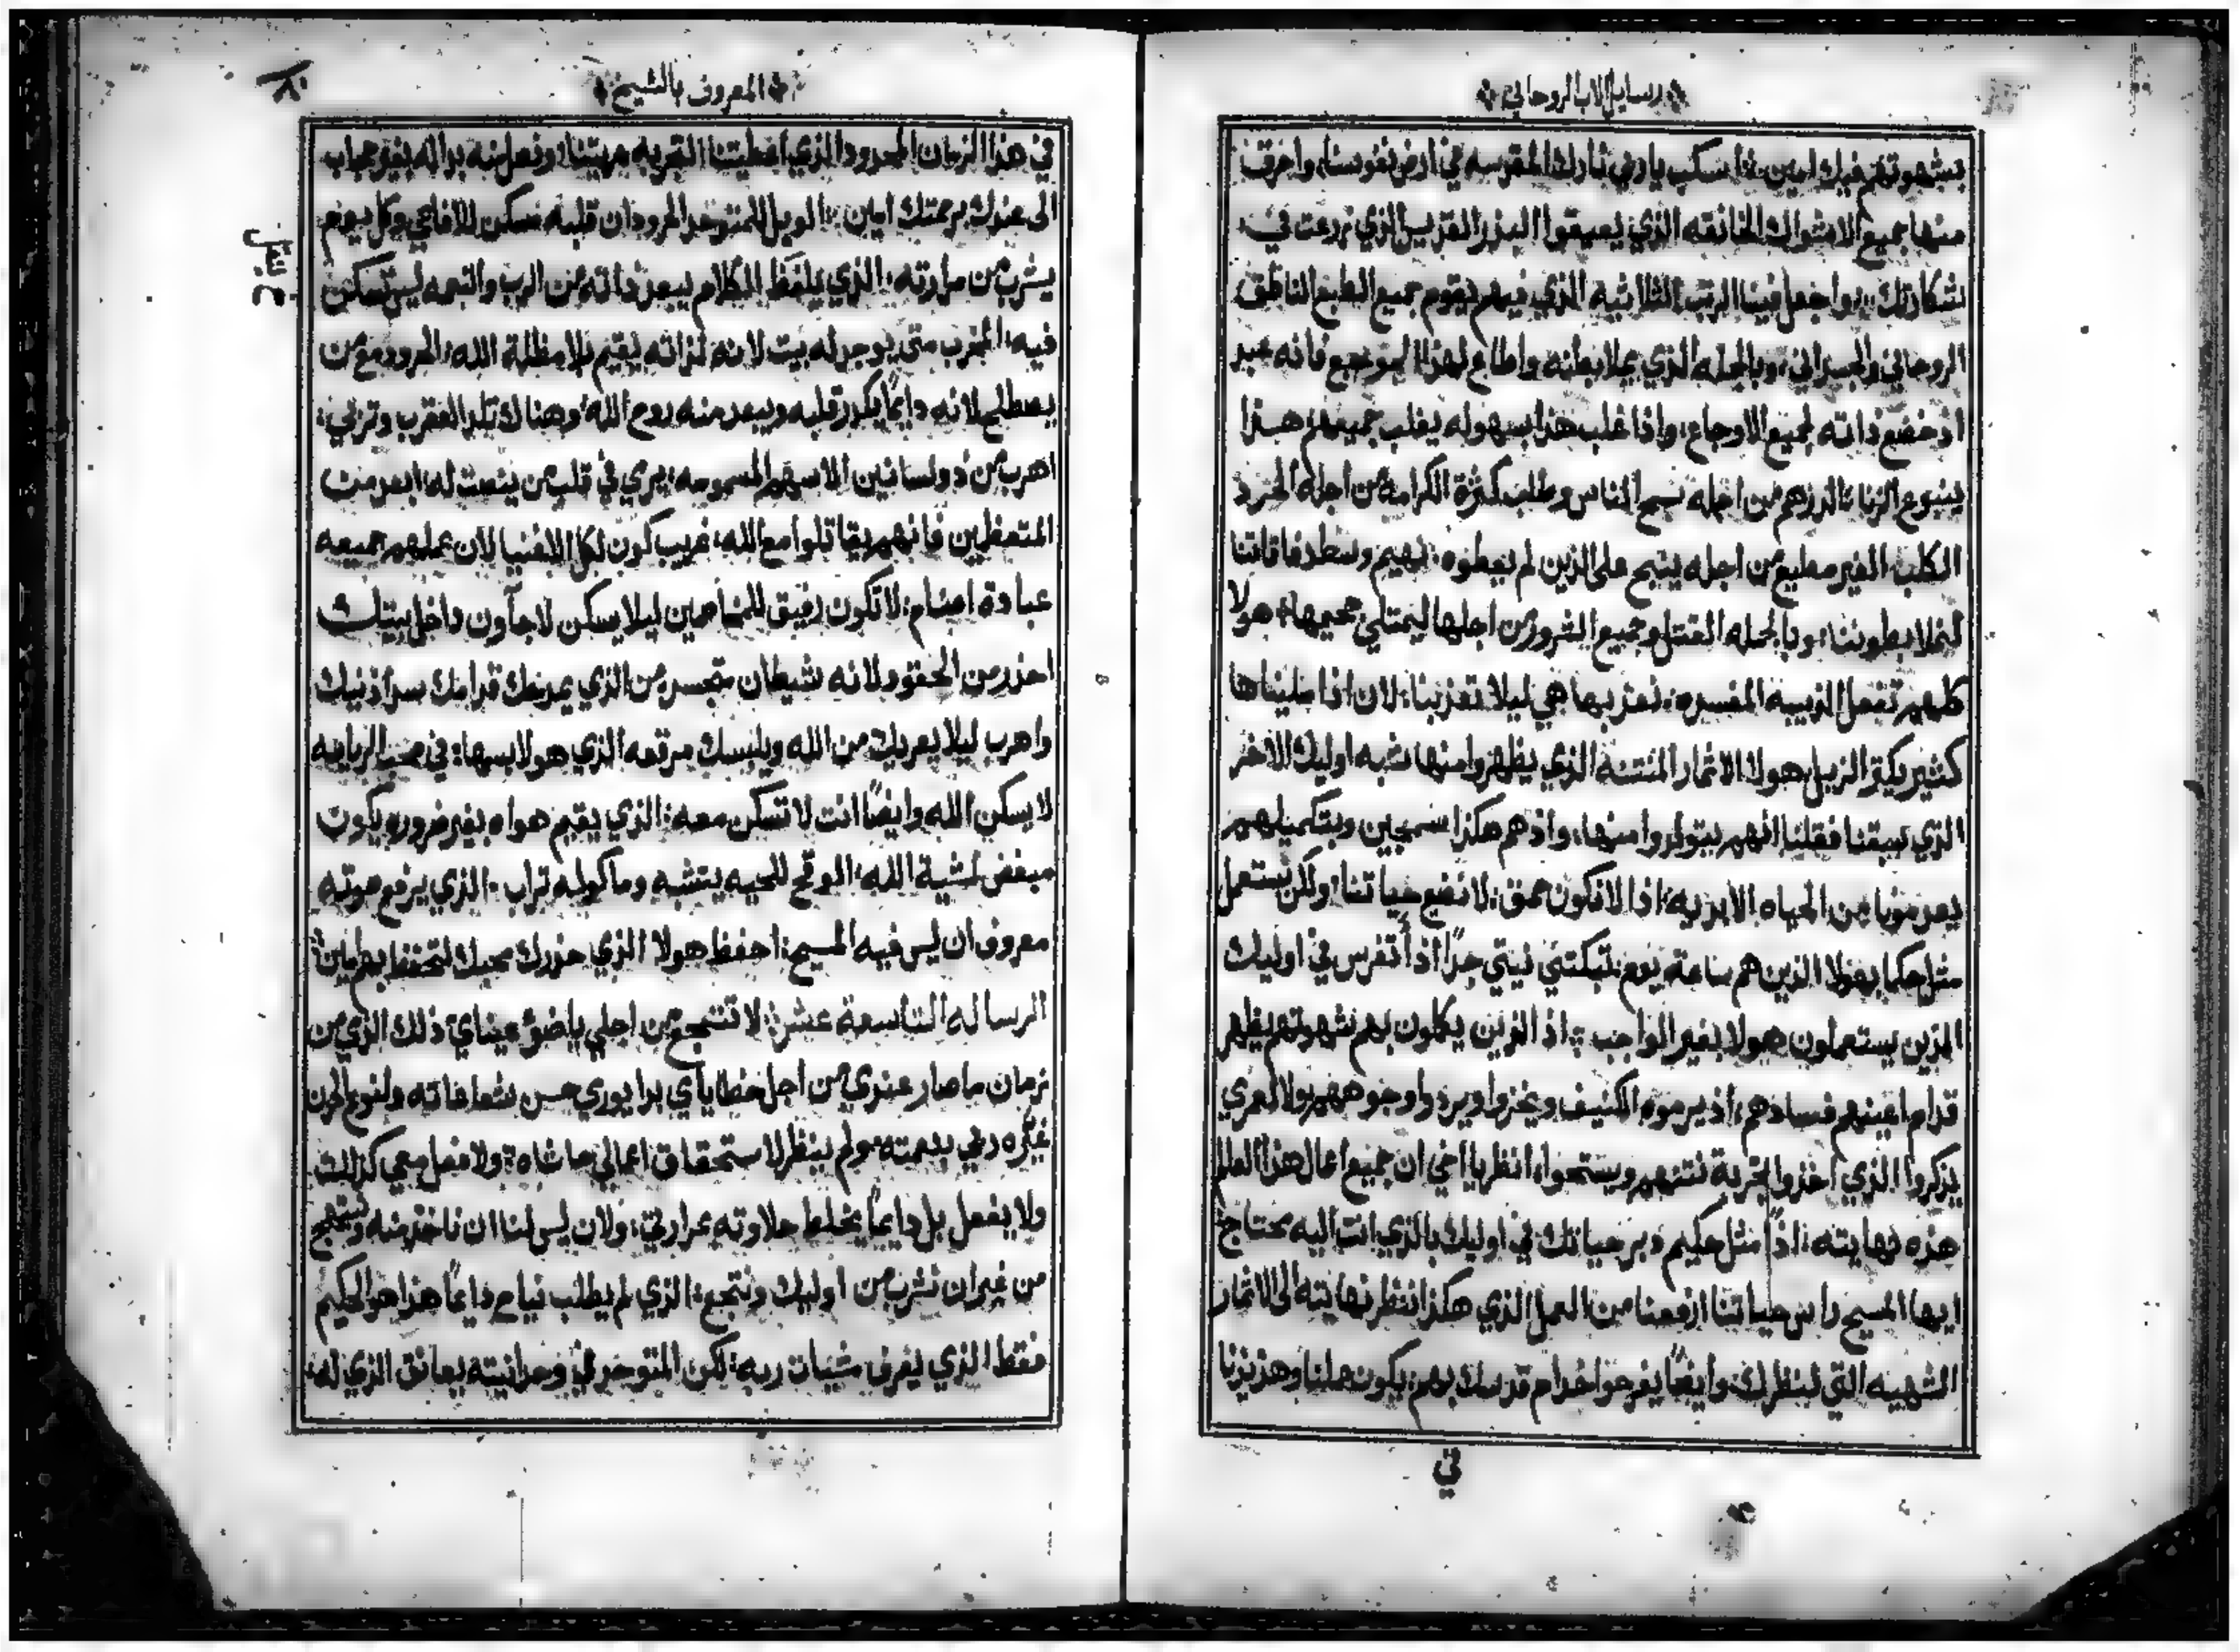 رسايل الاب الروحاني
بشهوتهم فيك امين اسكب يا ربي نارك المقدسه في ارض نفوسنا واحرق
منها جميع الاشواك الخانقه الذي يعيقوا البذر القديس الذي زرعت في
واجعل فينا الرتب الثلاثيه الذي فيهم يقوم جميع الطبع الناطق
الروحاني والجسداني وبالجمله الذي يملا بطنه واطاع لهذا الموجع فانه عبد
اذ خضع ذاته لجميع الاوجاع واذا غلب هذا بسهوله يغلب جميعهم هذا
ينبوع الزنا الدرهم من اجله نسبح الناس ونطلب كثرة الكرامه من اجله الحرد
الكلب الغير مطيع من اجله ينبح على الذين لم يعطوه نهيم
وبالجمله القتل وجميع الشرور من اجلها ليمتلي جحيمها هولا
كلهم تفعل الزبيبه المفسده نعذبها هي ليلا تعذبنا لان اذا مليناها
كثير يكثر الزبل هولا الاثمار المنتنه الذي يظهروا منها شبه اوليك الاخر
الذي سبقنا فقلنا انهم يتولدوا منها واذ هم هكذا سمجين وبتكميلهم
يعدمونا من الحياه الابديه اذا لا نكون حمق لا نضيع حياتنا ولكن نستعمل
مثل حكما بهولا الذين هم ساعة يوم تبكتني نيتي جدًا اذا تفرس في اوليك
الذين يستعملون هولا بغير الواجب اذ الذين يكملون بهم شهوتهم يظهر
قدام اعينهم فسادهم اذ يرموه الكنيف ويخزوا ويردوا وجوههم ولا لعمري
يذكروا الذي اخذوا تجربة نتنهم ويستحوا انظر يا اخي ان جميع اعمال هذا العالم
هذه نهايته اذًا مثل حكيم دبر حياتك في اوليك بالذي انت اليه محتاج
ايها المسيح راس حياتنا ارفعنا من العمل الذي هكذا ننظر نهايته الى الاثمار
الشهيه التي لنظرك وايضًا يفرحوا خدام قدسك بهم يكون هلنا وهذيذنا
في
المعروف بالشيخ
في هذا الزمان المحدود الذي اعطيتنا التجربه ونعلن به براله بغير حجاب
الى عندك برحمتك امين الويل للمتوحد الحرود ان قلبه مسكن للافاعي وكل يوم
يشرب من مرارته الذي يلفظ الكلام يبعد ذاته من الرب والنعمه ليس تسكن
فيه المخرب متى يوجد له بيت لانه لذاته يقيم بلا مظلة الله الحرود مع من
يصطلح لانه دايمًا يكدر قلبه ويبعد منه روح الله وهناك تلد العقرب وتربي
اهرب من ذو لسانين الاسهم المسمومه يرمي في قلب من ينصت له ابعد من
المتعظمين فانهم يقاتلوا مع الله غريب كون لكل الاغنيا لان عملهم جميعه
عبادة اصنام لا تكون رفيق للمنامين ليلا يسكن لاجاون داخل بيتك
احذر من الحقود لانه شيطان متجسد من الذي يمدحك قدامك سد اذنيك
واهرب ليلا يعريك من الله ويلبسك مرقعه الذي هو لابسها في محب الرياسه
لا يسكن الله وايضًا انت لا تسكن معه الذي يقيم هواه بغير ضروره يكون
مبغض لمشية الله الموقح للحيه يتشبه وماكوله تراب الذي يرفع صوته
معروف ان ليس فيه المسيح احفظ هولا الذي حذرك محبك لتحفظ بهم
الرساله التاسعة عشر لا تتوجع من اجلي يا ضو عيناي ذلك الذي من
زمان ما صار عندي من اجل خطاياي بدا يوري حسن شعاعاته ولنوع الحزن
غيره ربي بنعمته ولم ينظر لاستحقاق اعمالي حاشاه ولا فعل معي كذلك
ولا يفعل بل دايمًا يخلط حلاوته بمرارتي ولان ليس لنا ان ناخذ منه ونبتهج
من غير ان نشرب من اوليك ونتوجع الذي لم يطلب نياح دايمًا هذا هو الحكيم
فقط الذي يعرف مشيات ربه لكن المتوحد في وحدانيته يعانق الذي له